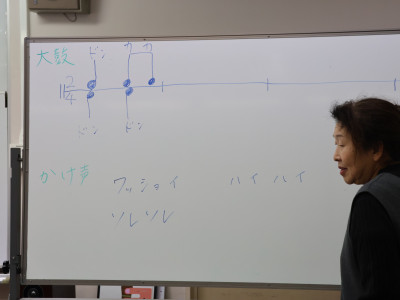 太鼓 ドン カカ
2/4
ドン ドン
かけ声 ワッショイ ハイ ハイ
ソレソレ